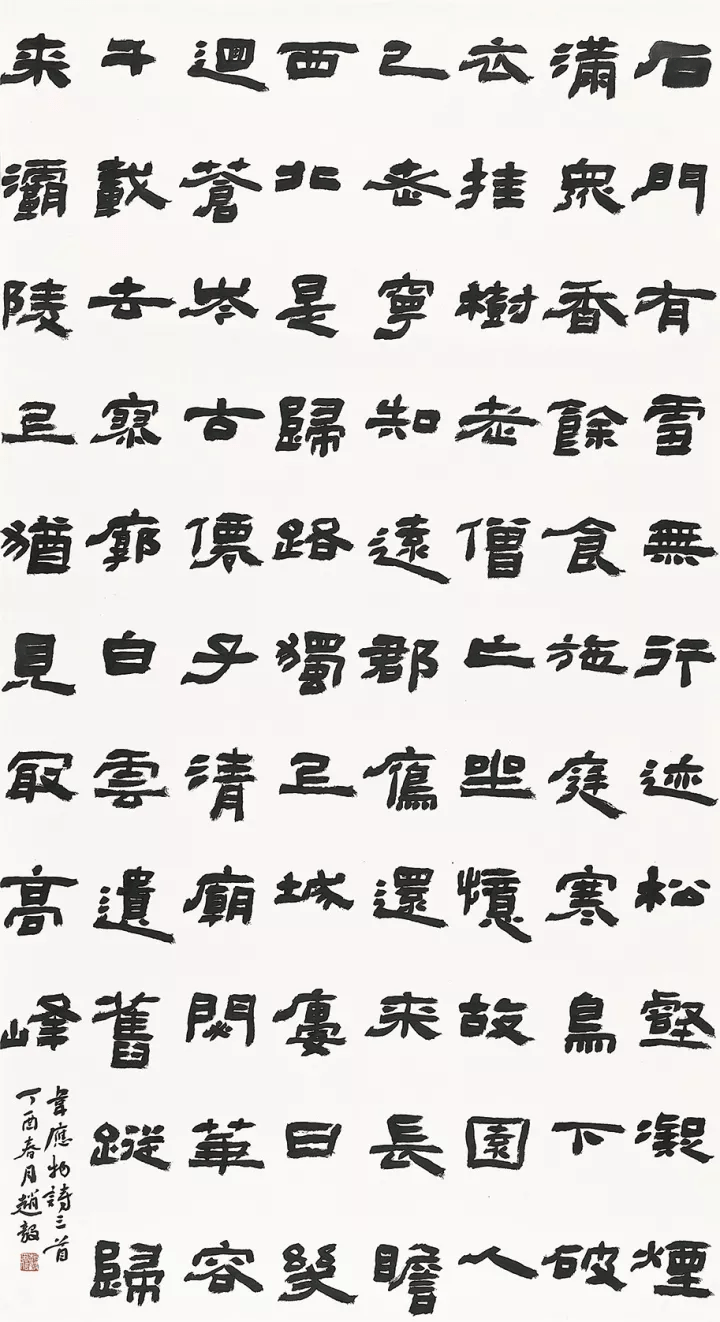 石門有雪無行迹松壑凝煙
滿眾香餘食施庭寒鳥下破
衣挂樹老僧亡坐憶故園人
已老寧知遠郡鴈還来長瞻
西北是歸路獨上城廔日幾
迴蒼岑古僊子清廟閟華容
千載去寥廓白雲遺舊蹤歸
来灞陵上猶見冣高峰
韋應物詩三首
丁酉春月趙毅